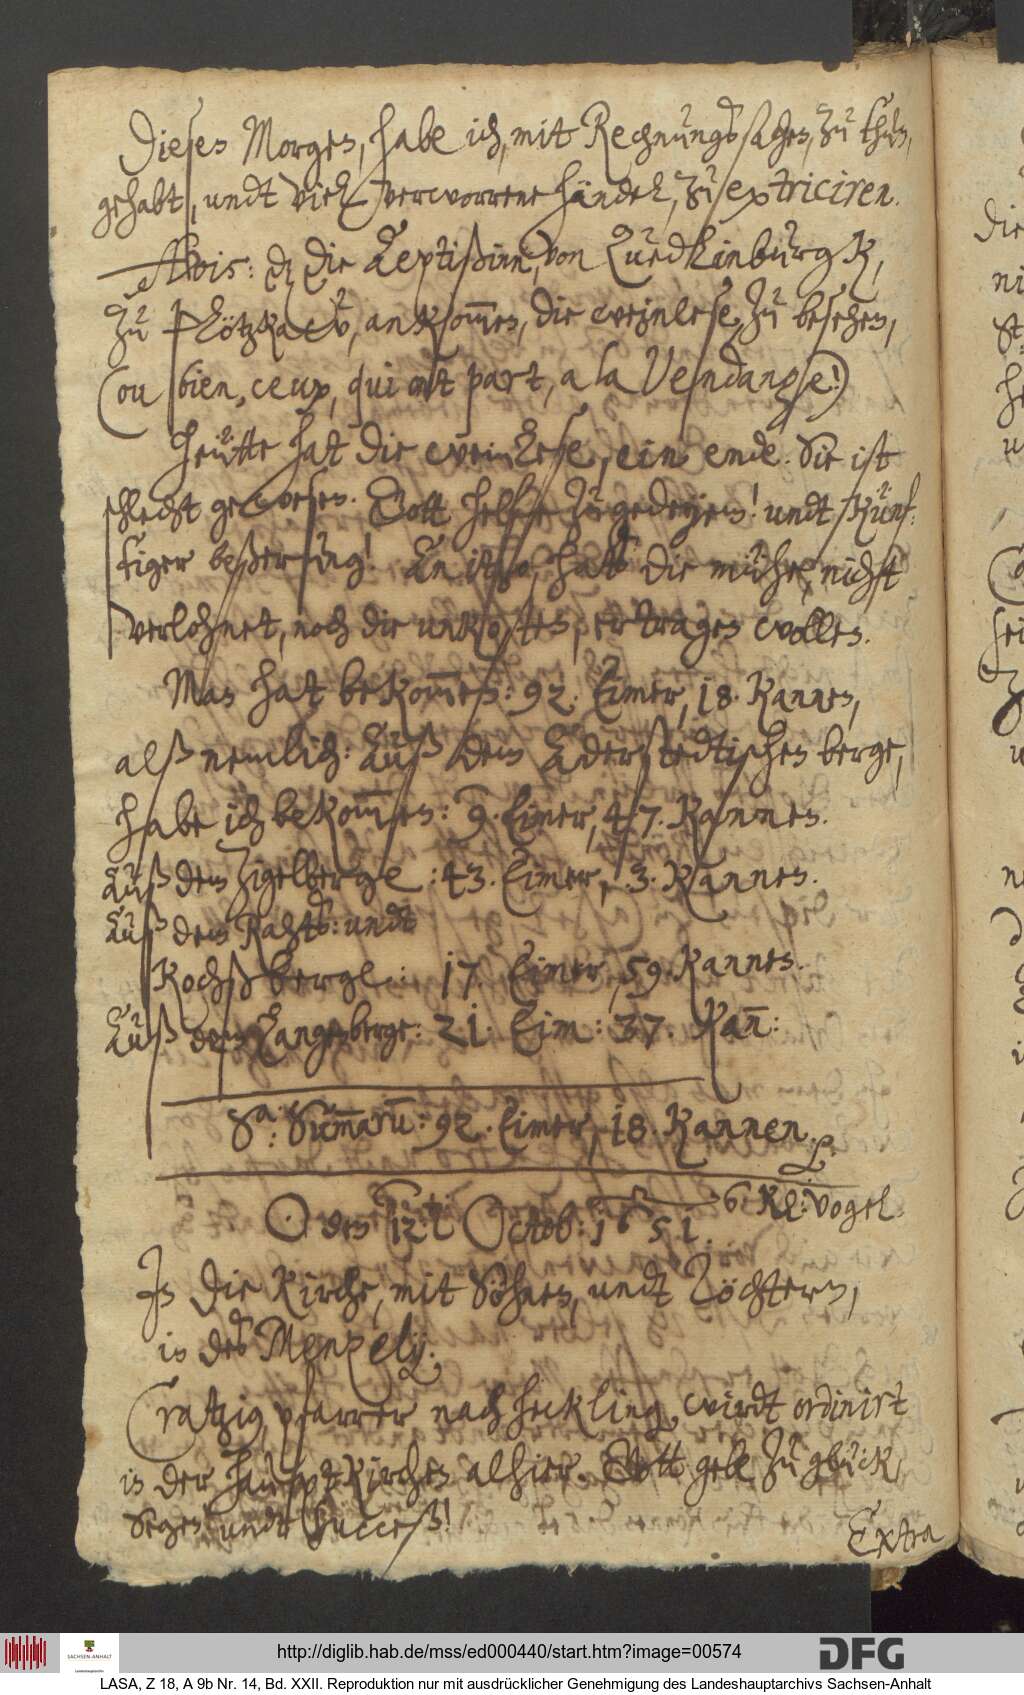 Dieses Morgens, habe ich, mit Rechnungßsachen, zu thun,
gehabt, undt viel verworrene händel, zu extriciren.
Avis: dz die Äeptißinn, von Quedlinburgk,
zu Plötzkaw, ankom̄en, die weinlese, zu besehen,
(ou bien, ceux, qui ont part, a la Vendange!)
Heütte hat die weinlese, ein ende. Sie ist
schlecht gewesen. Gott helfe zu gedeyen! undt künf-
tiger beßerung! An itzo, hats die mühe, nicht
verlohnet, noch die unkosten, ertragen wollen.
Man hat bekom̄en: 92. Eimer, 18. Kannen,
alß nemlich: Auß dem Aderstedtischen berge,
habe ich bekom̄en: 9. Eimer, 47. Kannen.
Auß dem Zigelberge: 43. Eimer, 3. Kannen.
Auß dem Rahts: undt
Kochßberge: 17. Eimer, 59. Kannen.
Auß dem Langenberge: 21. Eim: 37. Kan̄:
Sa: Sum̄arū: 92. Eimer, 18. Kannen.
6. Kl: Vogel.
☉ den 12. Octob: 1651.
In die Kirche, mit Söhnen, undt Töchtern,
in des Menzelij:
Cratzig, pfarrer nach Heckling, wirdt ordinirt
in der Hauptkirchen alhier. Gott gebe zu glück,
Segen undt Succeß!
Extra
http://diglib.hab.de/mss/ed000440/start.htm?image=00574
SACHSEN-ANHALT
DFG
LASA, Z 18, A 9b Nr. 14, Bd. XXII. Reproduktion nur mit ausdrücklicher Genehmigung des Landeshauptarchivs Sachsen-Anhalt